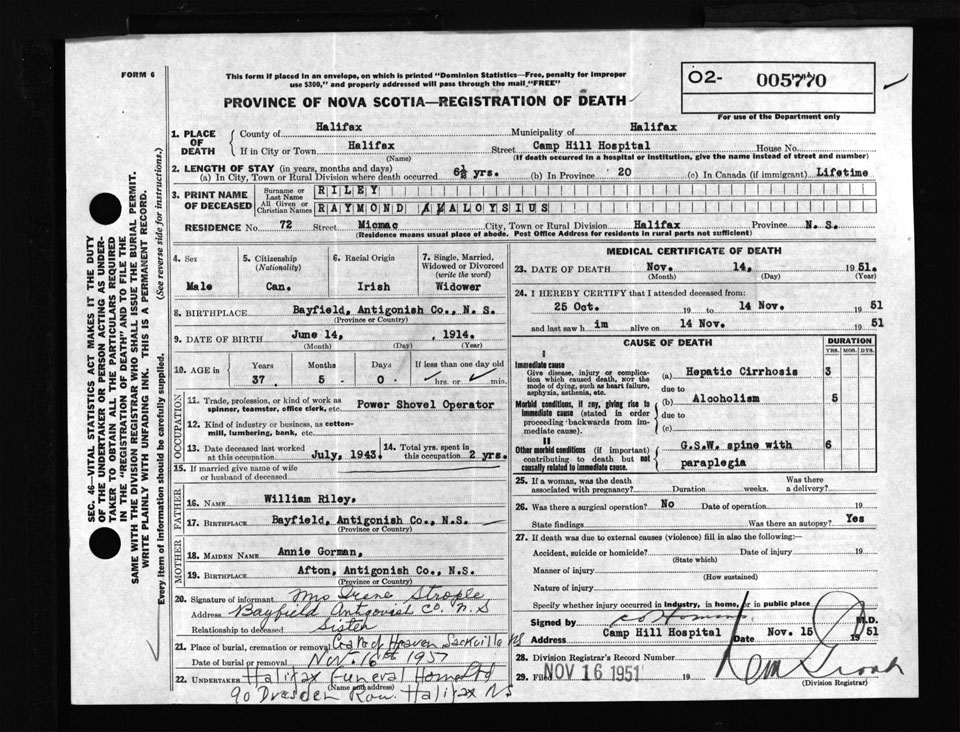 FORM 6
This form if placed in an envelope, on which is printed "Dominion Statistics—Free, penalty for improper
use $300," and properly addressed will pass through the mail "FREE"
O2- 005770
For use of the Department only
PROVINCE OF NOVA SCOTIA—REGISTRATION OF DEATH
1. PLACE OF DEATH
County of Halifax Municipality of Halifax
If in City or Town Halifax Street Camp Hill Hospital House No.
(Name) (If death occurred in a hospital or institution, give the name instead of street and number)
2. LENGTH OF STAY (in years, months and days)
(a) In City, Town or Rural Division where death occurred 6½ yrs. (b) In Province 20 (c) In Canada (if immigrant) Lifetime
3. PRINT NAME OF DECEASED
Surname or Last Name RILEY
All Given or Christian Names RAYMOND ALOYSIUS
RESIDENCE No. 72 Street Micmac City, Town or Rural Division Halifax Province N. S.
(Residence means usual place of abode. Post Office Address for residents in rural parts not sufficient)
4. Sex
Male
5. Citizenship
(Nationality)
Can.
6. Racial Origin
Irish
7. Single, Married,
Widowed or Divorced
(write the word)
Widower
8. BIRTHPLACE Bayfield, Antigonish Co., N. S.
(Province or Country)
9. DATE OF BIRTH June 14, , 1914.
(Month) (Day) (Year)
10. AGE in Years Months Days If less than one day old
37 5 0 hrs. or min.
OCCUPATION
11. Trade, profession, or kind of work as
spinner, teamster, office clerk, etc. Power Shovel Operator
12. Kind of industry or business, as cotton-
mill, lumbering, bank, etc.
13. Date deceased last worked
at this occupation July, 1943.
14. Total yrs. spent in
this occupation 2 yrs.
15. If married give name of wife
or husband of deceased
FATHER
16. NAME William Riley.
17. BIRTHPLACE Bayfield, Antigonish Co., N.S.
(Province or Country)
MOTHER
18. MAIDEN NAME Annie Gorman,
19. BIRTHPLACE Afton, Antigonish Co., N.S.
(Province or Country)
20. Signature of informant Mrs Irene Strople
Address Bayfield Antigonish Co. N.S
Relationship to deceased Sister
21. Place of burial, cremation or removal Gate of Heaven Sackville NS
Date of burial or removal Nov. 16th 1951
22. UNDERTAKER Halifax Funeral Home Ltd
(Name and address)
90 Dresden Row. Halifax NS
MEDICAL CERTIFICATE OF DEATH
23. DATE OF DEATH Nov. 14, 1951.
(Month) (Day) (Year)
24. I HEREBY CERTIFY that I attended deceased from:
25 Oct. 19 to 14 Nov. 19 51
and last saw him alive on 14 Nov. 19 51
CAUSE OF DEATH
DURATION
YRS. MOS. DYS.
I
Immediate cause
Give disease, injury or complica-
tion which caused death, not the
mode of dying, such as heart failure,
asphyxia, asthenia, etc.
(a) Hepatic Cirrhosis 3
due to
Morbid conditions, if any, giving rise to
immediate cause (stated in order
proceeding backwards from im-
mediate cause).
(b) Alcoholism 5
due to
(c)
II
Other morbid conditions (if important)
contributing to death but not
causally related to immediate cause.
G.S.W. spine with 6
paraplegia
25. If a woman, was the death
associated with pregnancy? Duration weeks. Was there
a delivery?
26. Was there a surgical operation? No Date of operation 19
State findings Was there an autopsy? Yes
27. If death was due to external causes (violence) fill in also the following:—
Accident, suicide or homicide? Date of injury 19
(State which)
Manner of injury
(How sustained)
Nature of injury
Specify whether injury occurred in industry, in home, or in public place
Signed by M.D.
Address Camp Hill Hospital Date Nov. 15 1951
28. Division Registrar's Record Number
29. Filed NOV 16 1951 19
(Division Registrar)
SEC. 46—VITAL STATISTICS ACT MAKES IT THE DUTY
OF THE UNDERTAKER OR PERSON ACTING AS UNDER-
TAKER TO OBTAIN ALL THE PARTICULARS REQUIRED
IN THE "REGISTRATION OF DEATH" AND TO FILE THE
SAME WITH THE DIVISION REGISTRAR WHO SHALL ISSUE THE BURIAL PERMIT.
WRITE PLAINLY WITH UNFADING INK. THIS IS A PERMANENT RECORD.
Every item of information should be carefully supplied. (See reverse side for instructions.)